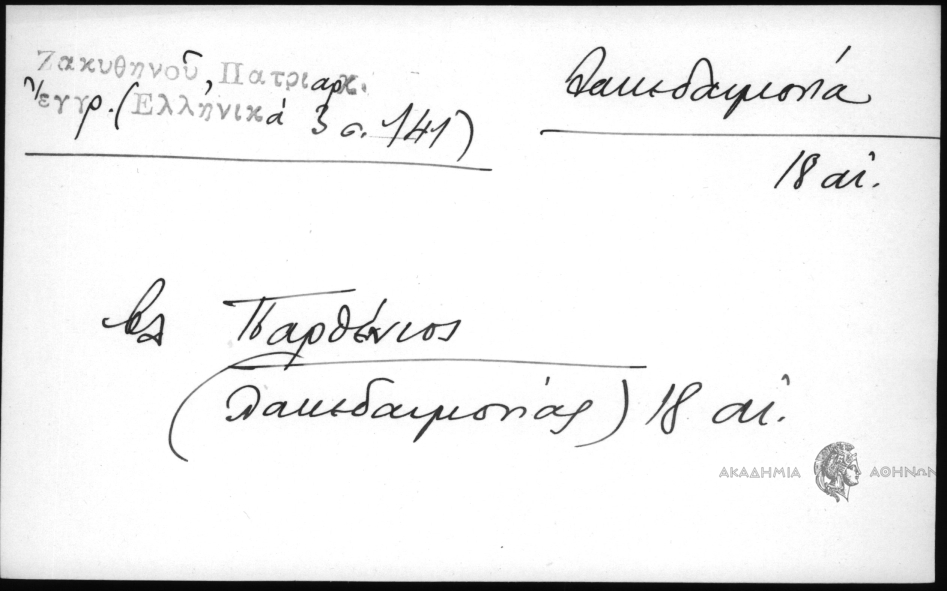 Ζακυθηνοῦ, Πατριαρχ.
ἔγγρ. (Ἑλληνικά 3 σ. 141)
Λακεδαιμονία
18 αἰ.
βλ Παρθένιος
(Λακεδαιμονίας) 18 αἰ.
ΑΚΑΔΗΜΙΑ ΑΘΗΝΩΝ